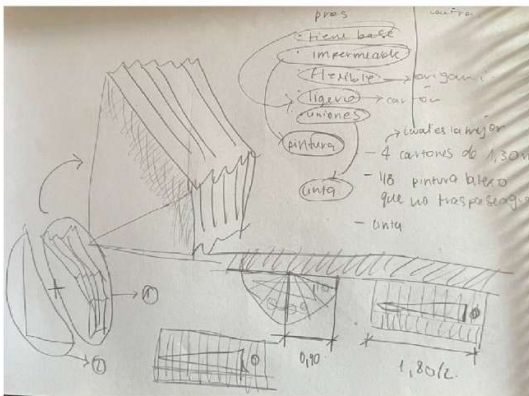 pros
contras
- tiene base
- impermeable
- flexible → origami
- ligero → cartón
- uniones
pintura
→ cual es la mejor
- 4 cartones de 1,30
cinta
- pintura latex
que no traspase agua
- cinta
1
2
0,90
1,80/2.